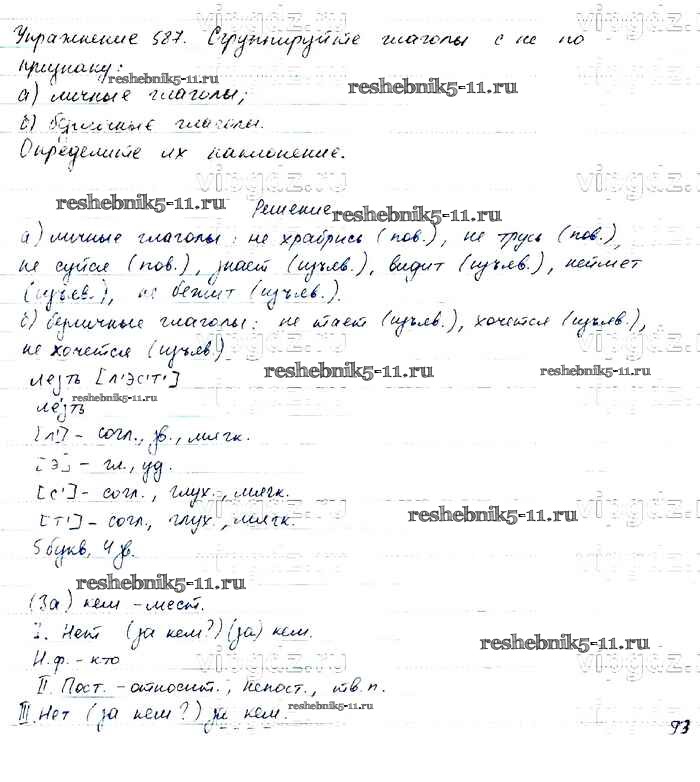 Упражнение 587. Сгруппируйте глаголы с не по
признаку:
reshebnik5-11.ru
reshebnik5-11.ru
а) личные глаголы;
б) безличные глаголы.
vipgdz.ru
vipgdz.ru
Определите их наклонение.
vipgdz.ru
vipgdz.ru
reshebnik5-11.ru
Решение
reshebnik5-11.ru
а) личные глаголы: не храбрись (пов.), не трусь (пов.),
не суйся (пов.), знает (изъяв.), видит (изъяв.), неймет
(изъяв.), не бежит (изъяв.).
б) безличные глаголы: не тает (изъяв.), хочется (изъяв.),
не хочется (изъяв.)
vipgdz.ru
vipgdz.ru
лезть [л'эс'т']
reshebnik5-11.ru
reshebnik5-11.ru
лезть
reshebnik5-11.ru
[л'] - согл., зв., мягк.
[э] - гл., уд.
[с'] - согл., глух., мягк.
[т'] - согл., глух., мягк.
vipgdz.ru
vipgdz.ru
reshebnik5-11.ru
5 букв, 4 зв.
reshebnik5-11.ru
(За) кем - мест.
I. Нет (за кем?) (за) кем.
reshebnik5-11.ru
Н.ф. - кто
vipgdz.ru
vipgdz.ru
II. Пост. - относит., непост., тв.п.
III. Нет (за кем?) за кем.
reshebnik5-11.ru
93